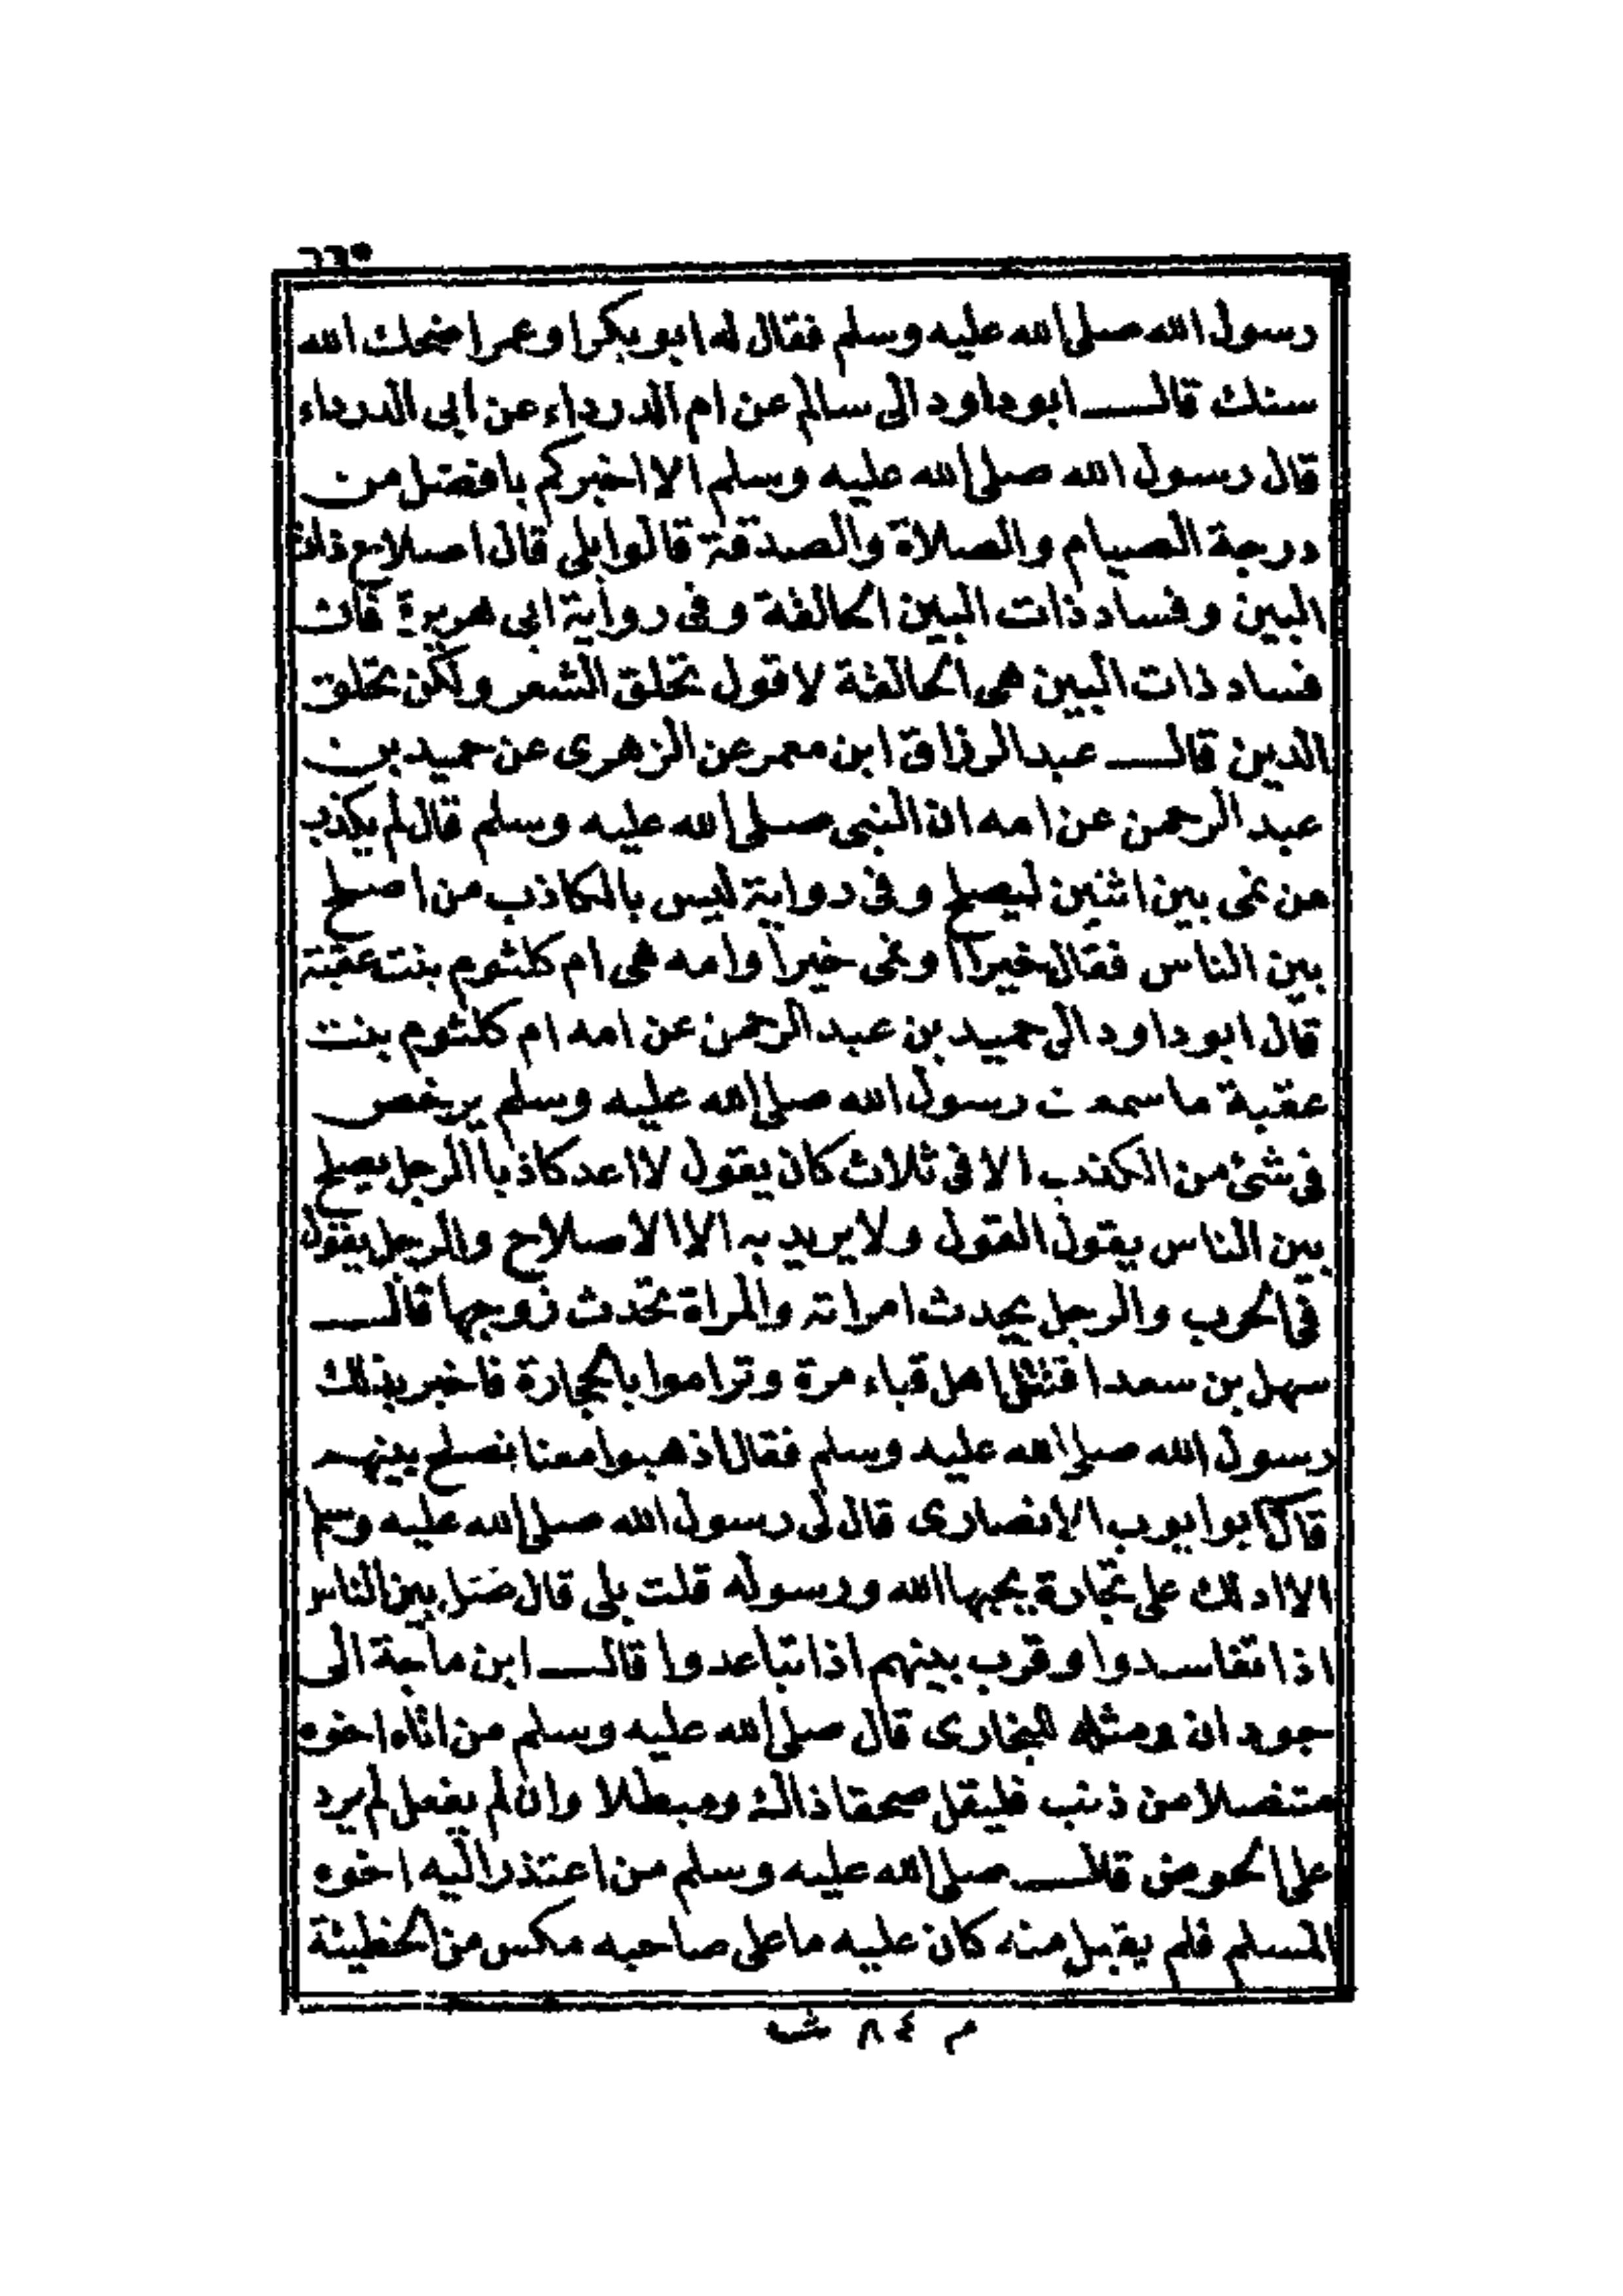 ٦٦٥
رسول الله صلى الله عليه وسلم فقال له ابو بكر او عمر اضحك الله
سنك قال ابو داود الى سالم عن ام الدرداء عن ابى الدرداء
قال رسول الله صلى الله عليه وسلم الا اخبركم بافضل من
درجة الصيام والصلاة والصدقة قالوا بلى قال اصلاح ذات
البين وفساد ذات البين الحالقة وفى رواية ابى هريرة فان
فساد ذات البين هى الحالقة لا قول تحلق الشعر ولكن تحلق
الدين قال عبد الرزاق ابن معمر عن الزهرى عن حميد بن
عبد الرحمن عن امه ان النبى صلى الله عليه وسلم قال لم يكذب
من نمى بين اثنين ليصلح وفى رواية ليس بالكاذب من اصلح
بين الناس فقال خيرا ونمى خيرا وامه هى ام كلثوم بنت عقبة
قال ابو داود الى حميد بن عبد الرحمن عن امه ام كلثوم بنت
عقبة ما سمعت رسول الله صلى الله عليه وسلم يرخص
فى شئ من الكذب الا فى ثلاث كان يقول لا اعد كاذبا الرجل يصلح
بين الناس يقول القول ولا يريد به الا الاصلاح والرجل يقول
فى الحرب والرجل يحدث امراته والمراة تحدث زوجها قال
سهل بن سعد اقتتل اهل قباء مرة وتراموا بالحجارة فاخبر بذلك
رسول الله صلى الله عليه وسلم فقال اذهبوا معنا نصلح بينهم
قال ابو ايوب الانصارى قال لى رسول الله صلى الله عليه وسلم
الا ادلك على تجارة يحبها الله ورسوله قلت بلى قال بين الناس
اذا تفاسدوا وقرب بينهم اذا تباعدوا قال ابن ماجة الى
جودان ومثله للبخارى قال صلى الله عليه وسلم من اتاه اخوه
متنصلا من ذنب فليقل محقا ذالك ومبطلا وان لم يفعل لم يرد
على الحوض قال صلى الله عليه وسلم من اعتذر اليه اخوه
المسلم فلم يقبل منه كان عليه ما على صاحبه مكس من الخطيئة
م ٨٤ ش